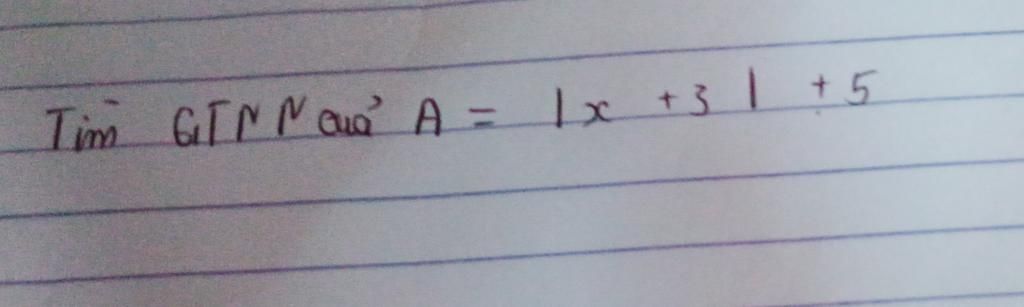 Tìm GTNN của A = |x + 3| + 5